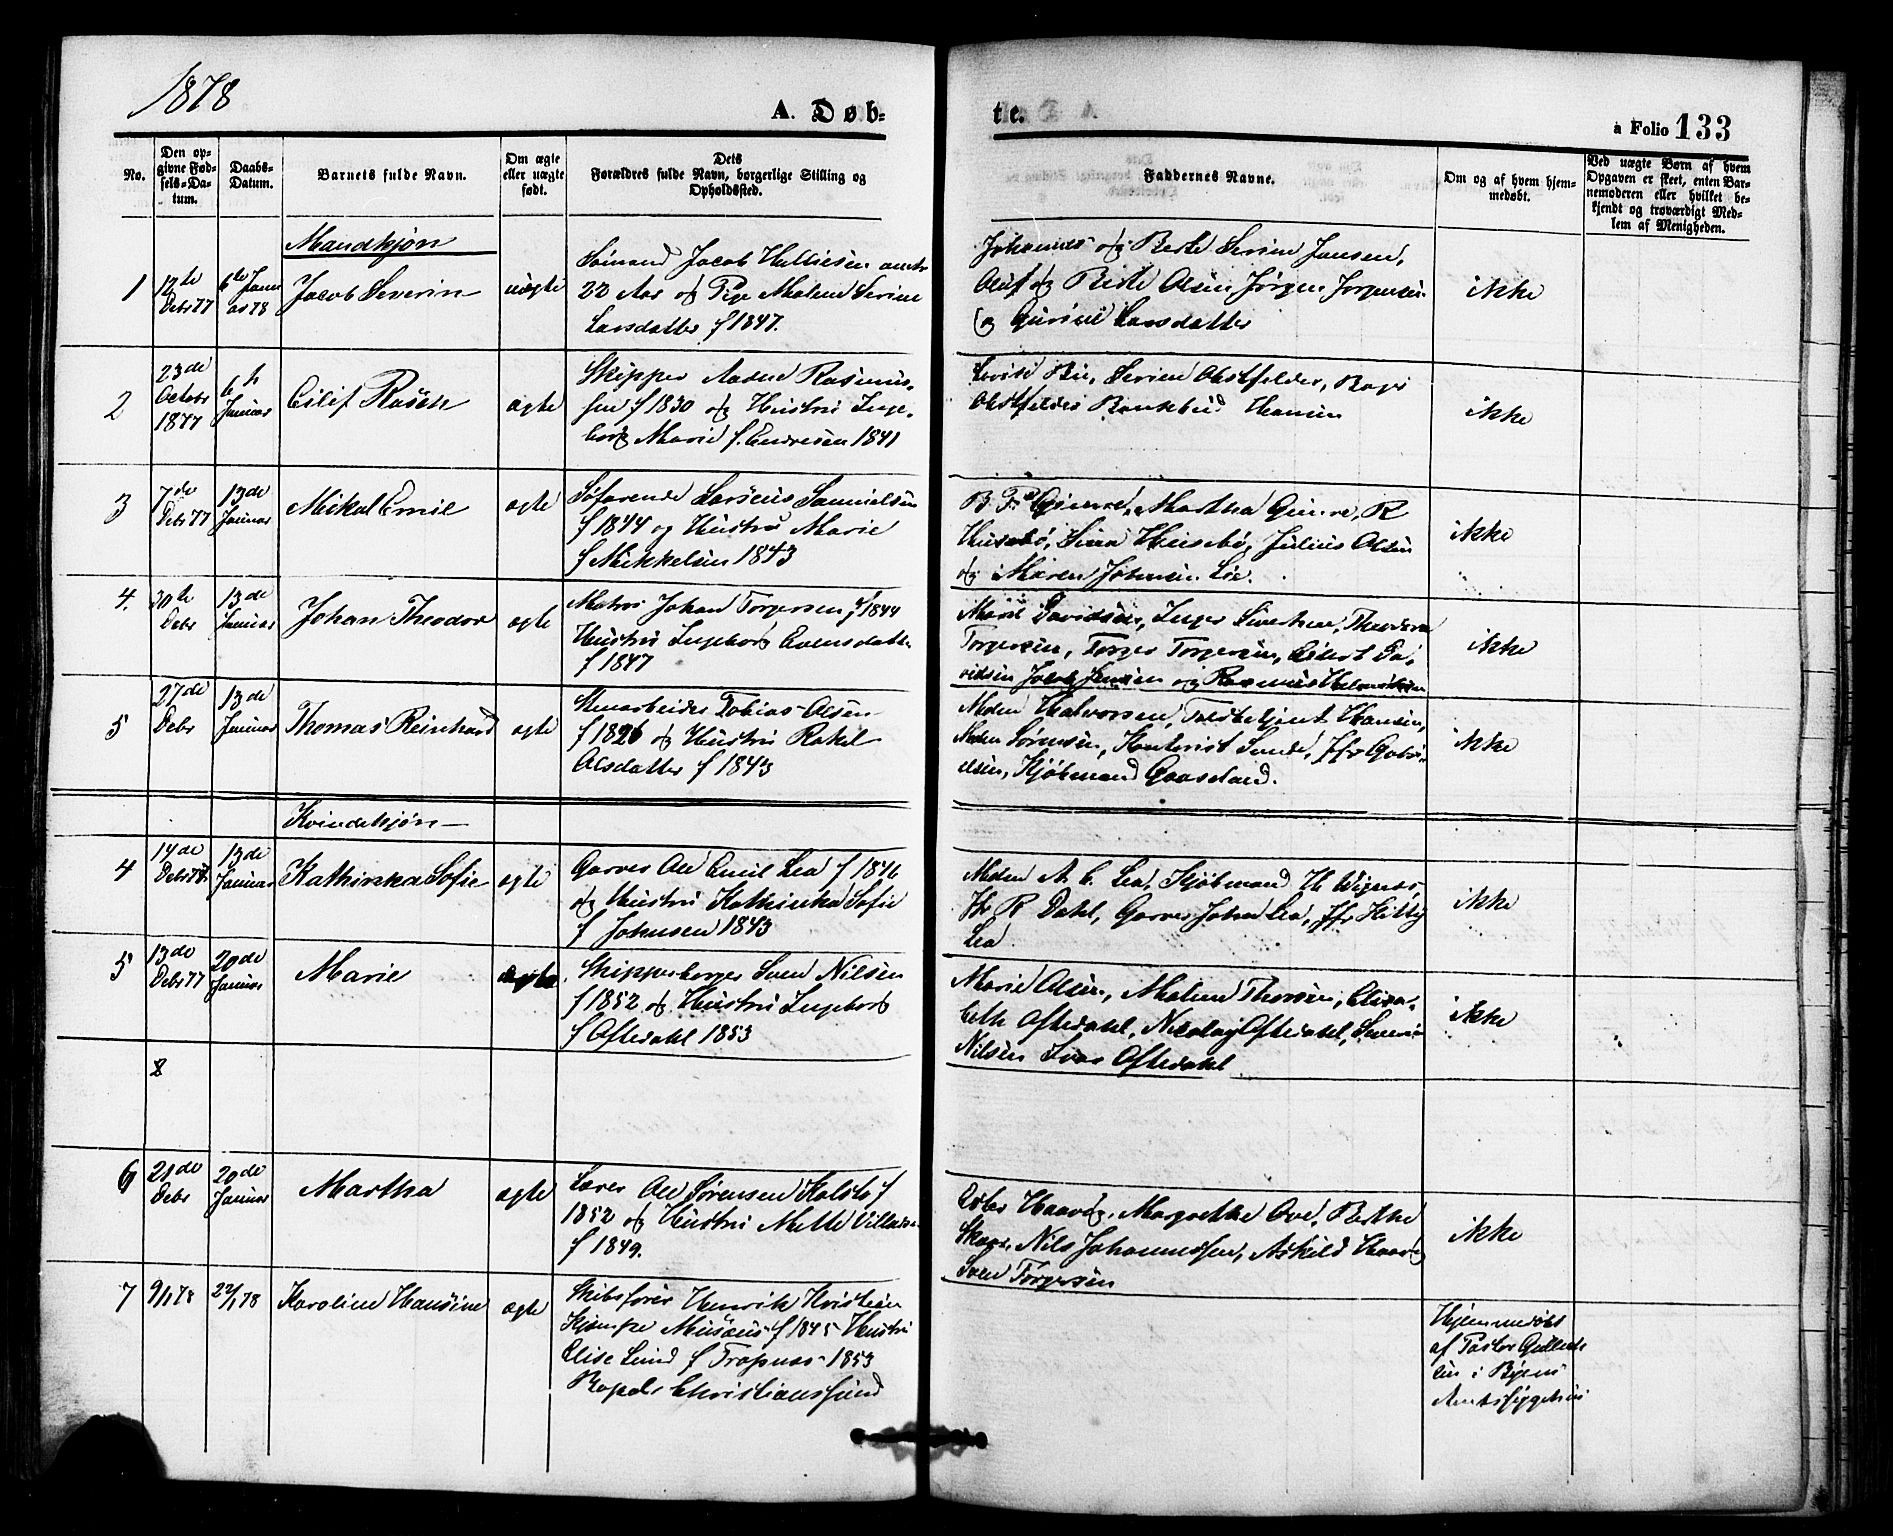 1878
A. Døb-
te.
a Folio 133
No.
Den op-
givne Fød-
sels-Da-
tum.
Daabs-
Datum.
Barnets fulde Navn.
Om ægte
eller uægte
født.
Dets
Forældres fulde Navn, borgerlige Stilling og
Opholdssted.
Faddernes Navne.
Om og af hvem hjem-
medøbt.
Ved uægte Børn af hvem
Opgaven er skeet, enten Bar-
nemoderen eller hvilket be-
kjendt og troværdigt Med-
lem af Menigheden.
Mandkjøn
1
12te
Debr 77
6te Janu
ar 78
Jacob Severin
uægte
Sømand Jacob
22 Aar og Pige Malene Serine
Larsdatter f 1847.
Johannes og Berte Serine Jansen,
Oluf og Berte Olsen Jørgen Jørgensen
og Larsdatter
ikke
2
23de
Octobr
1877
6te
Januar
Eilif
ægte
Skipper Rasmus-
sen f 1830 og Hustru Inge-
borg Marie f. Endresen 1841
Serine Obstfelder,
Obstfelder Hansen
ikke
3
7de
Debr 77
13de
Januar
Mikal Emil
ægte
Søfarende Samuelsen
f 1844 og Hustru Marie
f Mikkelsen 1843
Martha R
Husebø, Husebø, Julius Olsen
og Maren Johnsen
ikke
4.
30te
Debr
13de
Januar
Johan Theodor
ægte
Matros Johan Torgersen f 1844
Hustru Ingeborg Evensdatter
f 1847
Davidsen, Inger Sivertsen,
Torgersen, Torger Torgersen, Da-
vidsen Jacob Jensen og Rasmus
ikke
5
27de
Debr
13de
Januar
Thomas Reinhard
ægte
Tobias Olsen
f 1826 og Hustru Rakel
Olsdatter f 1843
Mdm Halvorsen, Toldbetjent Hansen,
Mdm Sørensen, Kontorist Lunde, Jfr Gabri-
elsen, Kjøbmand Gaaseland.
ikke
Kvindekjøn
4
14de
Debr 77
13de
Januar
Kathinka Sofie
ægte
Garver Ole Emil Lea f 1846
og Hustru Kathinka Sofie
f Johnsen 1843
Mdm A. C. Lea, Kjøbmand
Hr R Dahl, Garver Johan Lea, Jfr Kitty
Lea
ikke
5
13de
Debr 77
20de
Januar
Marie
ægte
Skipperborger Sven Nilsen
f 1852 og Hustru Ingeborg
f Oftedahl 1853
Marie Olsen, Malene Thorsen, Elisa-
beth Oftedahl, Nicolay Oftedahl,
Nilsen Ivar Oftedahl
ikke
8
6
21de
Debr
20de
Januar
Martha
ægte
Ole Sørensen Kalstø f
1852 og Hustru Mette
f 1849.
Margrethe Berthe
Nils Johannessen, Askild
Sven Torgersen
ikke
7
9/1 78
22/1 78
Karoline Hansine
ægte
Skibsfører Henrik Kristian
Kjempe Musæus f 1845 Hustru
Elise Lund f Trapnes 1853
Christianssund
Hjemmedøbt
af Pastor
i Byens